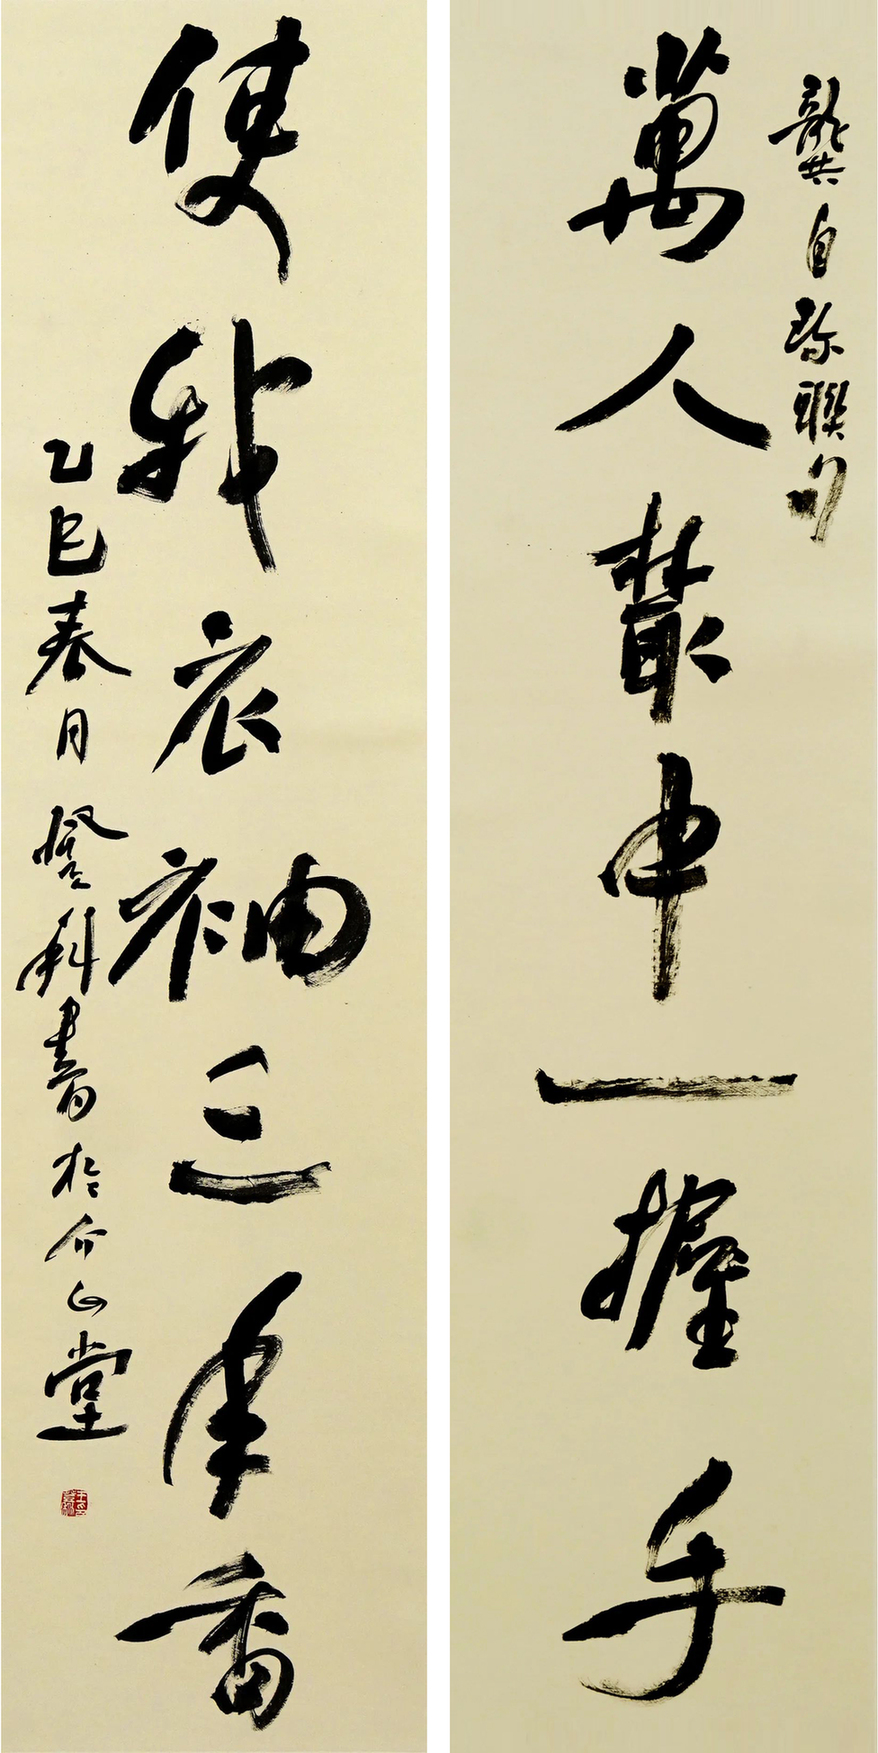 龔自珍聯句
萬人叢中一握手
使我衣袖三年香
乙巳春月登科書於介山堂